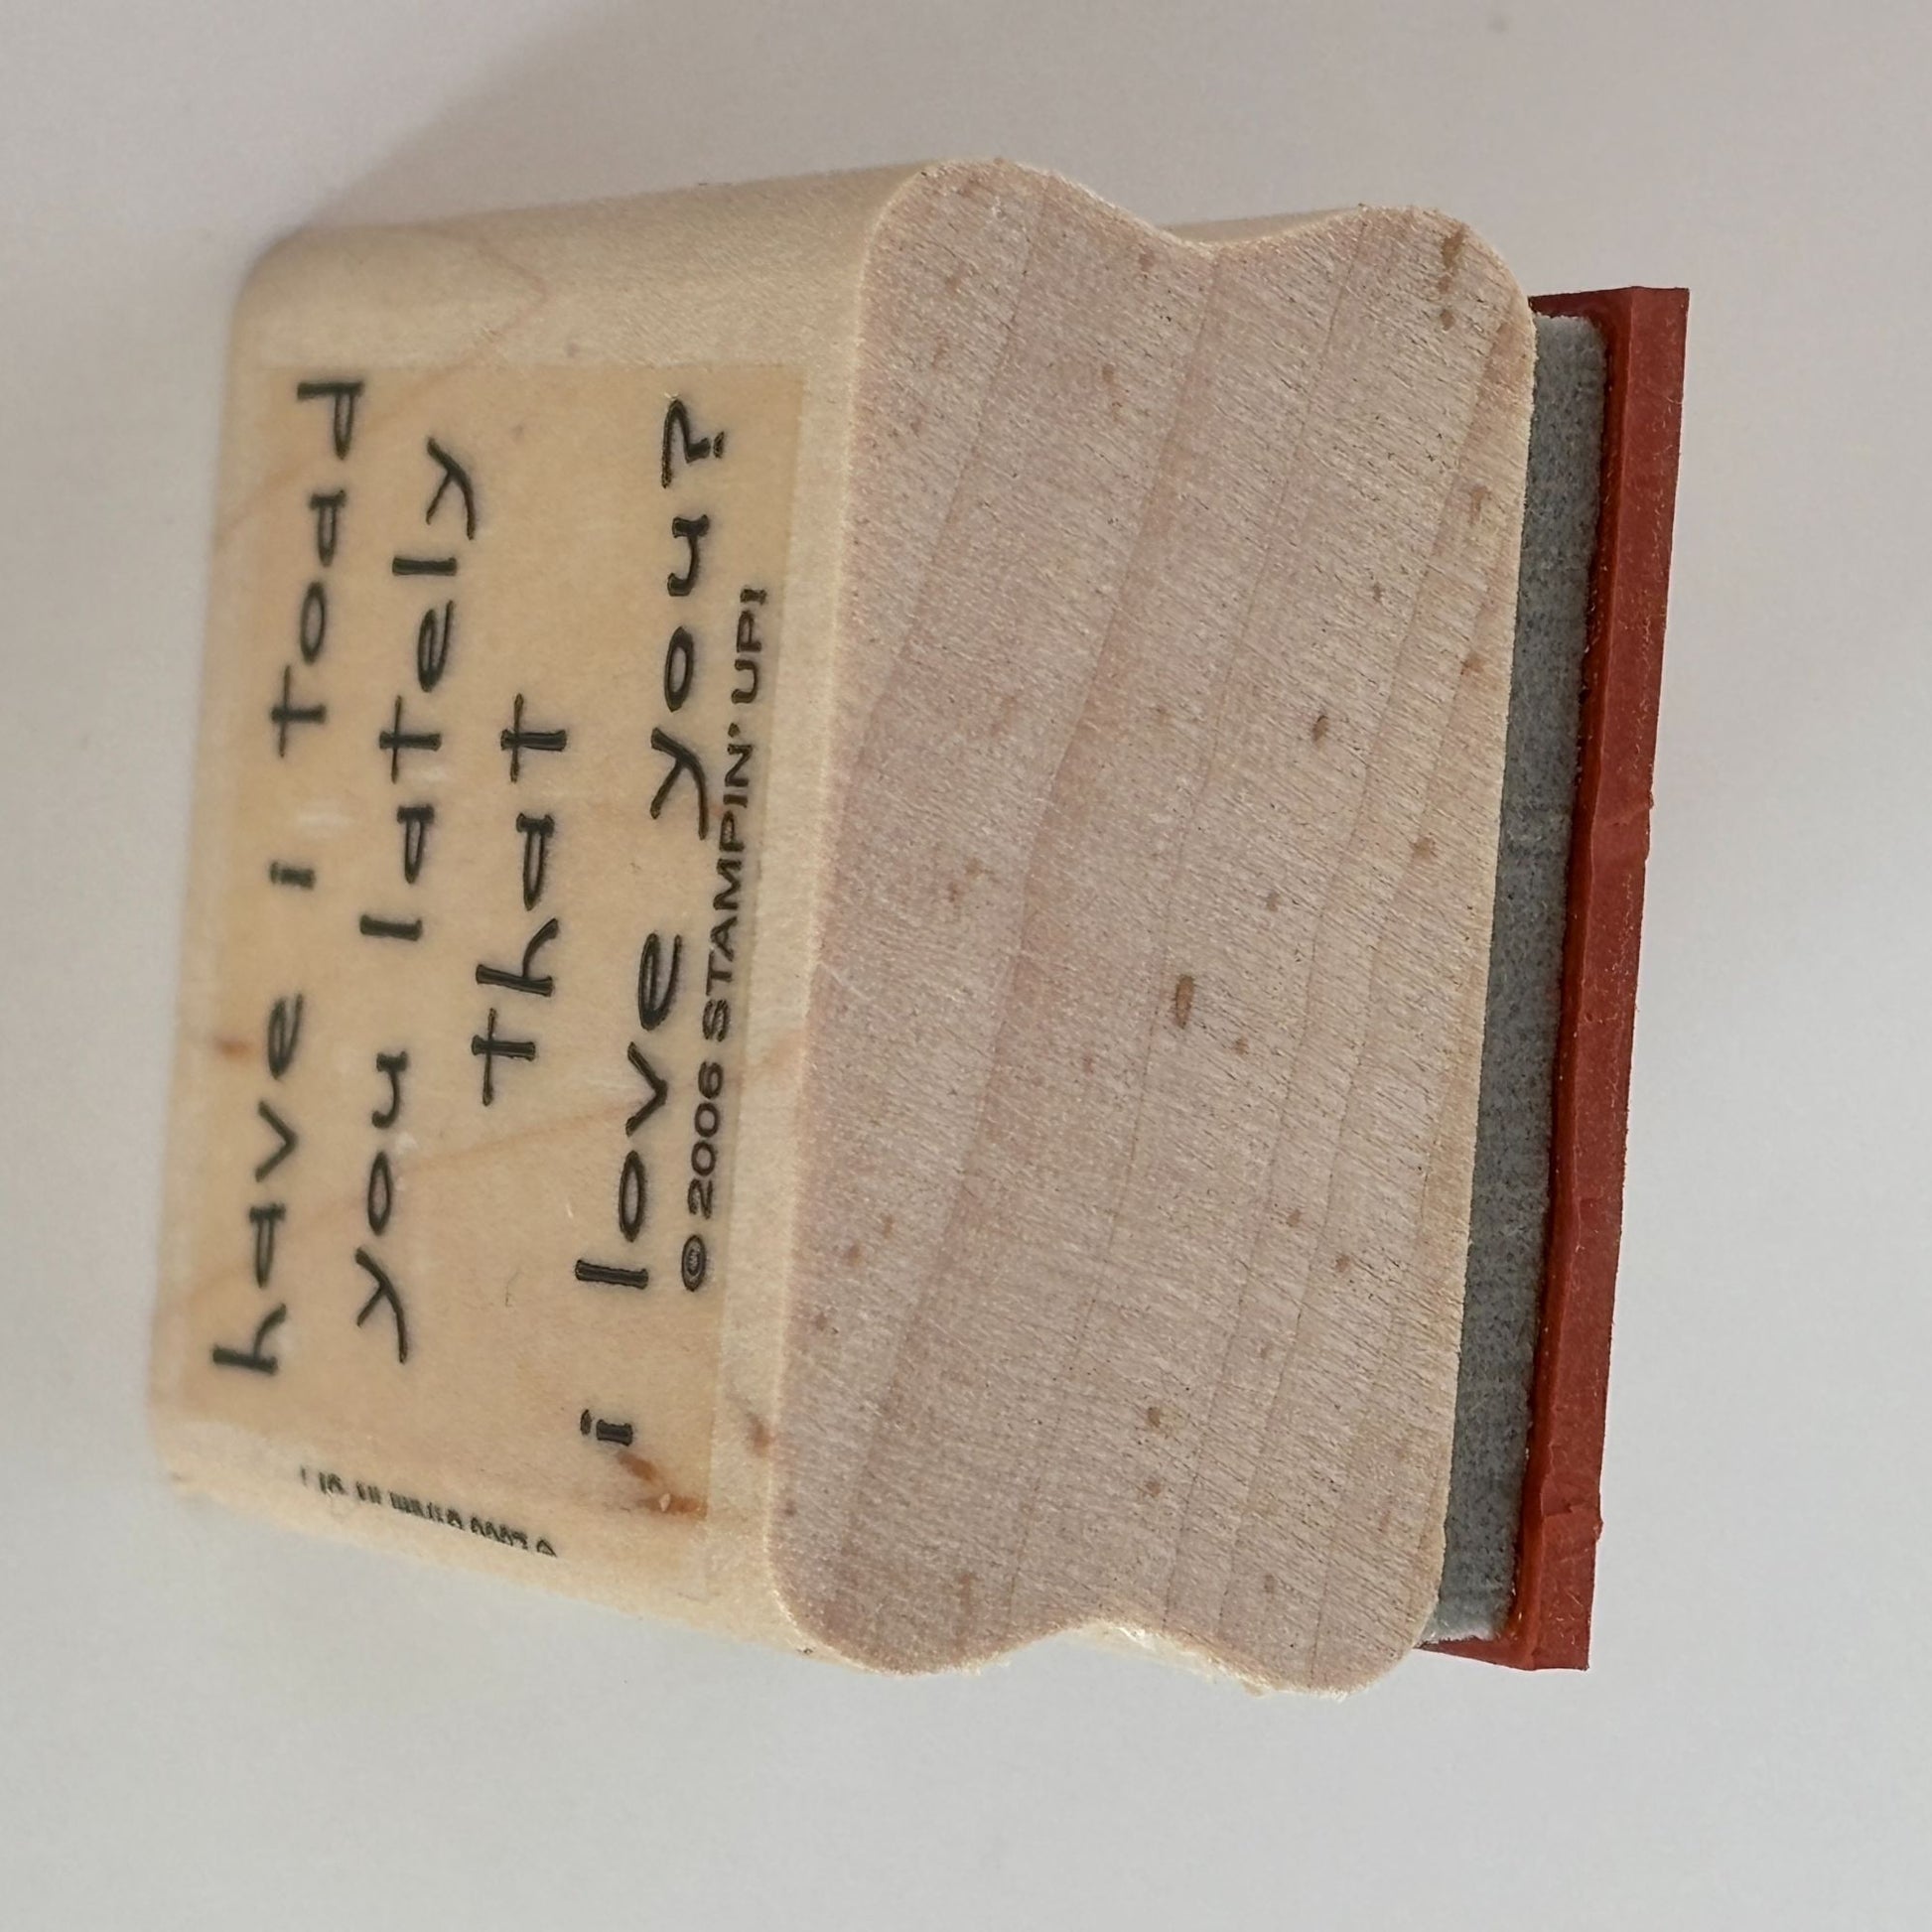 have i toad
you lately
that
i love you?
© 2006 STAMPIN' UP!